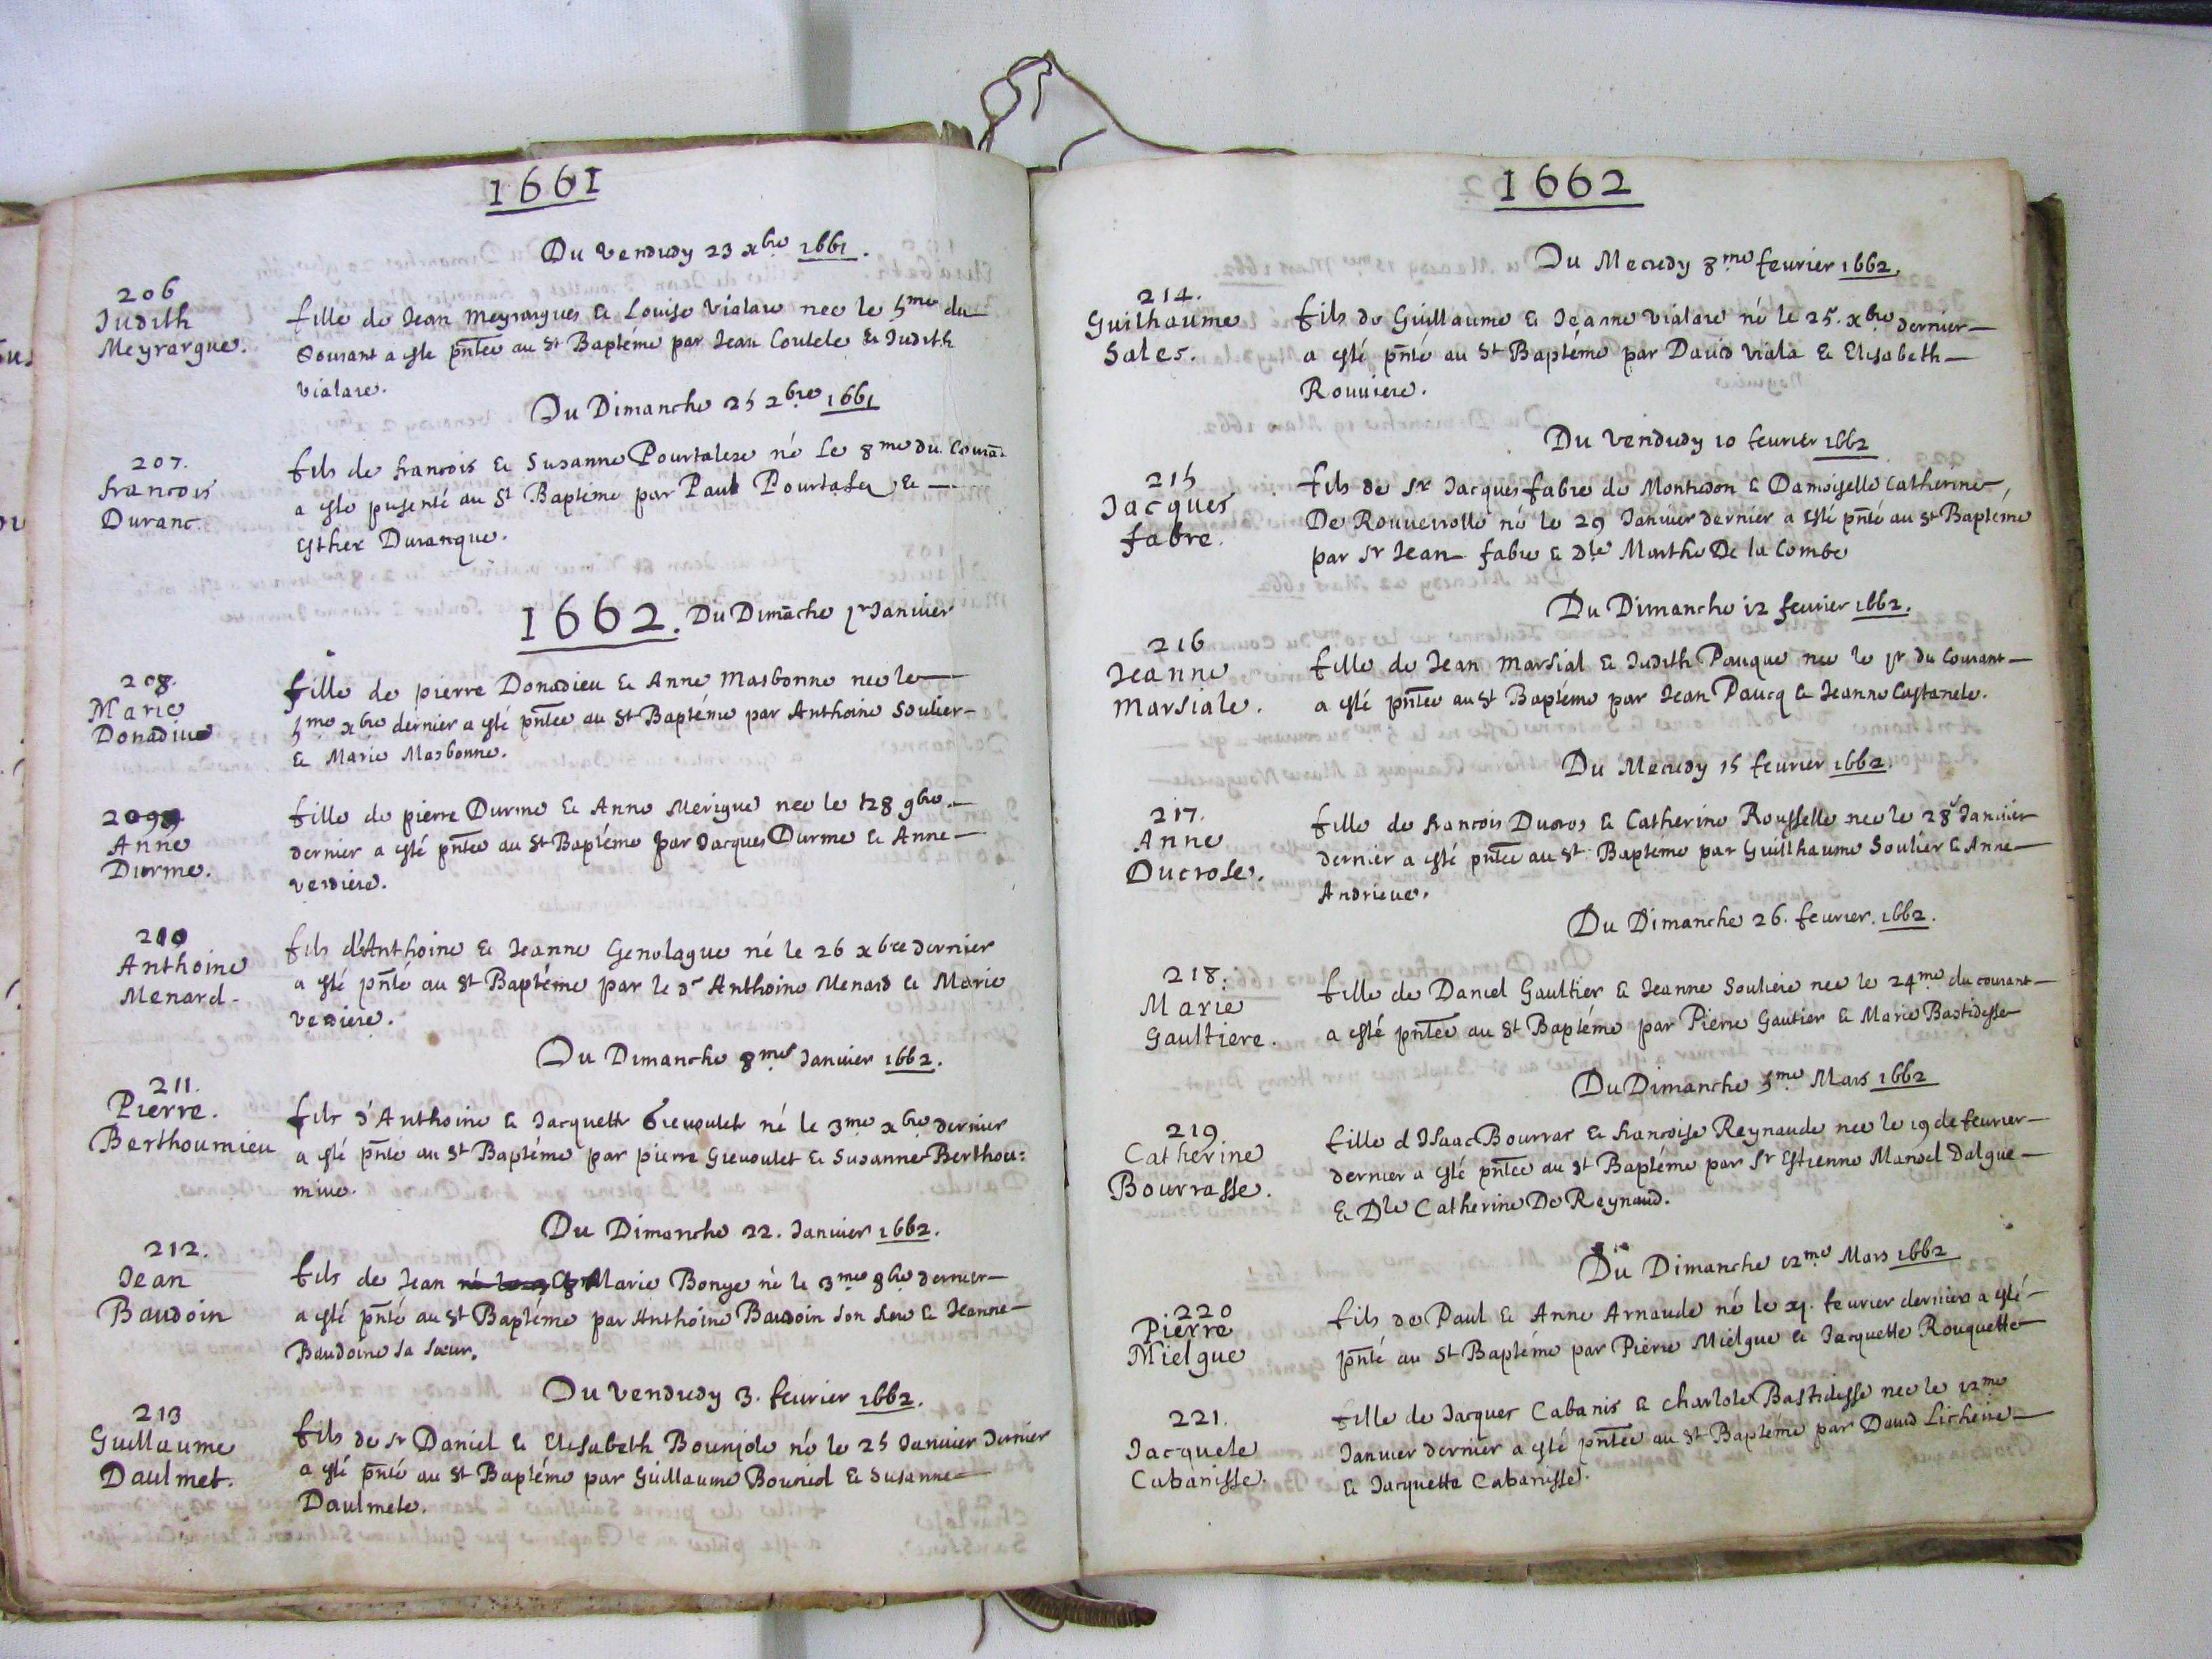 1661
Du Vendredy 23 xbre 1661.
206
Judith
Meyrargue.
fille de Jean Meyrargues & Louise Vialare nee le 5me du
Courant a esté pñtée au St Baptéme par Jean Coulele & Judith
Vialare.
Du Dimanche 25 xbre 1661
207.
francois
Duranc.
fils de francois & Susanne Pourtalese né Le 8me du Courāt
a esté presenté au St Baptéme par Paul Pourtales & —
Esther Duranque.
1662. Du Dimāche 1r Janvier
208.
Marie
Donadiue
fille de pierre Donadieu & Anne Masbonne nee le —
5me xbre dernier a esté pñtée au St Baptéme par Anthoine Soulier —
& Marie Masbonne.
209
Anne
Durme.
fille de pierre Durme & Anne Merigue nee le 28 9bre. —
dernier a esté pñtée au St Baptéme par Jacques Durme & Anne —
Verdiere.
210
Anthoine
Menard -
fils d'Anthoine & Jeanne Genolague né le 26 xbre dernier
a esté pñté au St Baptéme par le Sr Anthoine Menard & Marie
Verdiere.
Du Dimanche 8me Janvier 1662.
211.
Pierre.
Berthoumieu
fils d'Anthoine & Jacquette Grevoulet né le 3me xbre dernier
a esté pñté au St Baptéme par pierre Grevoulet & Susanne Berthou:
mive.
Du Dimanche 22. Janvier 1662.
212.
Jean
Baudoin
fils de Jean & Marie Bonge né le 3me 8bre dernier —
a esté pñté au St Baptéme par Anthoine Baudoin son frere & Jeanne —
Baudoine sa sœur.
Du Vendredy 3. fevrier 1662.
213
Guillaume
Daulmet.
fils de sr Daniel & Elisabeth Bourriole né le 25 Janvier dernier
a esté pñté au St Baptéme par Guillaume Bourriol & Susanne —
Daulmete.
1662
Du Mecredy 8me fevrier 1662.
214.
Guilhaume
Sales.
fils de Guillaume & Jeanne Vialare né le 25. xbre dernier —
a esté pñté au St Baptéme par David Viala & Elisabeth —
Rouviere.
Du Vendredy 10 fevrier 1662
215
Jacques
fabre.
fils de Sr Jacques fabre de Montredon & Damoiselle Catherine
De Rouverolle né le 29 Janvier dernier a esté pñté au St Baptéme
par Sr Jean fabre & Dle Marthe De la Combe
Du Dimanche 12 fevrier 1662.
216
Jeanne
Marsiale.
fille de Jean Marsial & Judith Pauque nee le 1r du Courant —
a esté pñtée au St Baptéme par Jean Paucq & Jeanne Castanele.
Du Mecredy 15 fevrier 1662.
217.
Anne
Ducrose.
fille de francois Ducros & Catherine Rousselle nee le 28 Janvier
dernier a esté pñtée au St Baptéme par Guillhaume Soulier & Anne —
Andrieve.
Du Dimanche 26. fevrier. 1662.
218.
Marie
Gaultiere.
fille de Daniel Gaultier & Jeanne Souliere nee le 24me du courant —
a esté pñtée au St Baptéme par Pierre Gautier & Marie Bastidesse
Du Dimanche 5me Mars 1662
219
Catherine
Bourrasse.
fille d'Isaac Bourras & francoise Reynaude nee le 19 de fevrier —
dernier a esté pñtée au St Baptéme par Sr Estienne Manoel Dalgue —
& Dle Catherine De Reynaud.
Du Dimanche 12me Mars 1662
220
Pierre
Mielgue
fils de Paul & Anne Arnaude né le xj. fevrier dernier a esté —
pñté au St Baptéme par Pierre Mielgue & Jacquette Rouquette
221.
Jacquete
Cabanisse.
fille de Jacques Cabanis & charlote Bastidesse nee le 12me
Janvier dernier a esté pñtée au St Baptéme par David Licheire —
& Jacquette Cabanisse.